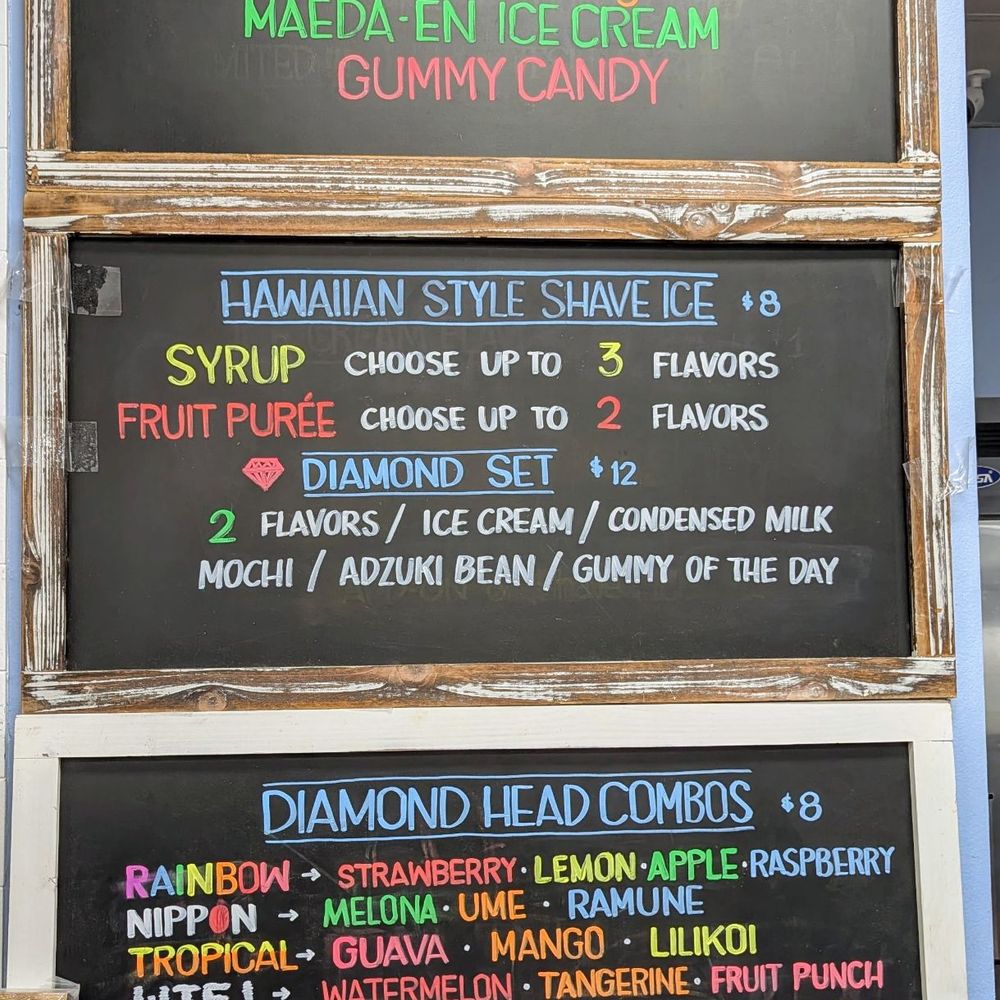 MAEDA-EN ICE CREAM
GUMMY CANDY
HAWAIIAN STYLE SHAVE ICE $8
SYRUP CHOOSE UP TO 3 FLAVORS
FRUIT PURÉE CHOOSE UP TO 2 FLAVORS
DIAMOND SET $12
2 FLAVORS / ICE CREAM / CONDENSED MILK
MOCHI / ADZUKI BEAN / GUMMY OF THE DAY
DIAMOND HEAD COMBOS $8
RAINBOW → STRAWBERRY · LEMON · APPLE · RASPBERRY
NIPPON → MELONA · UME · RAMUNE
TROPICAL → GUAVA · MANGO · LILIKOI
→ WATERMELON · TANGERINE · FRUIT PUNCH